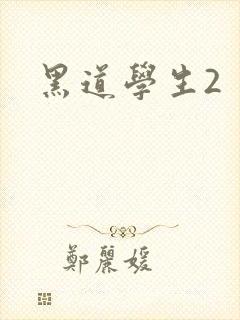 黑道學生2
鄭麗媛